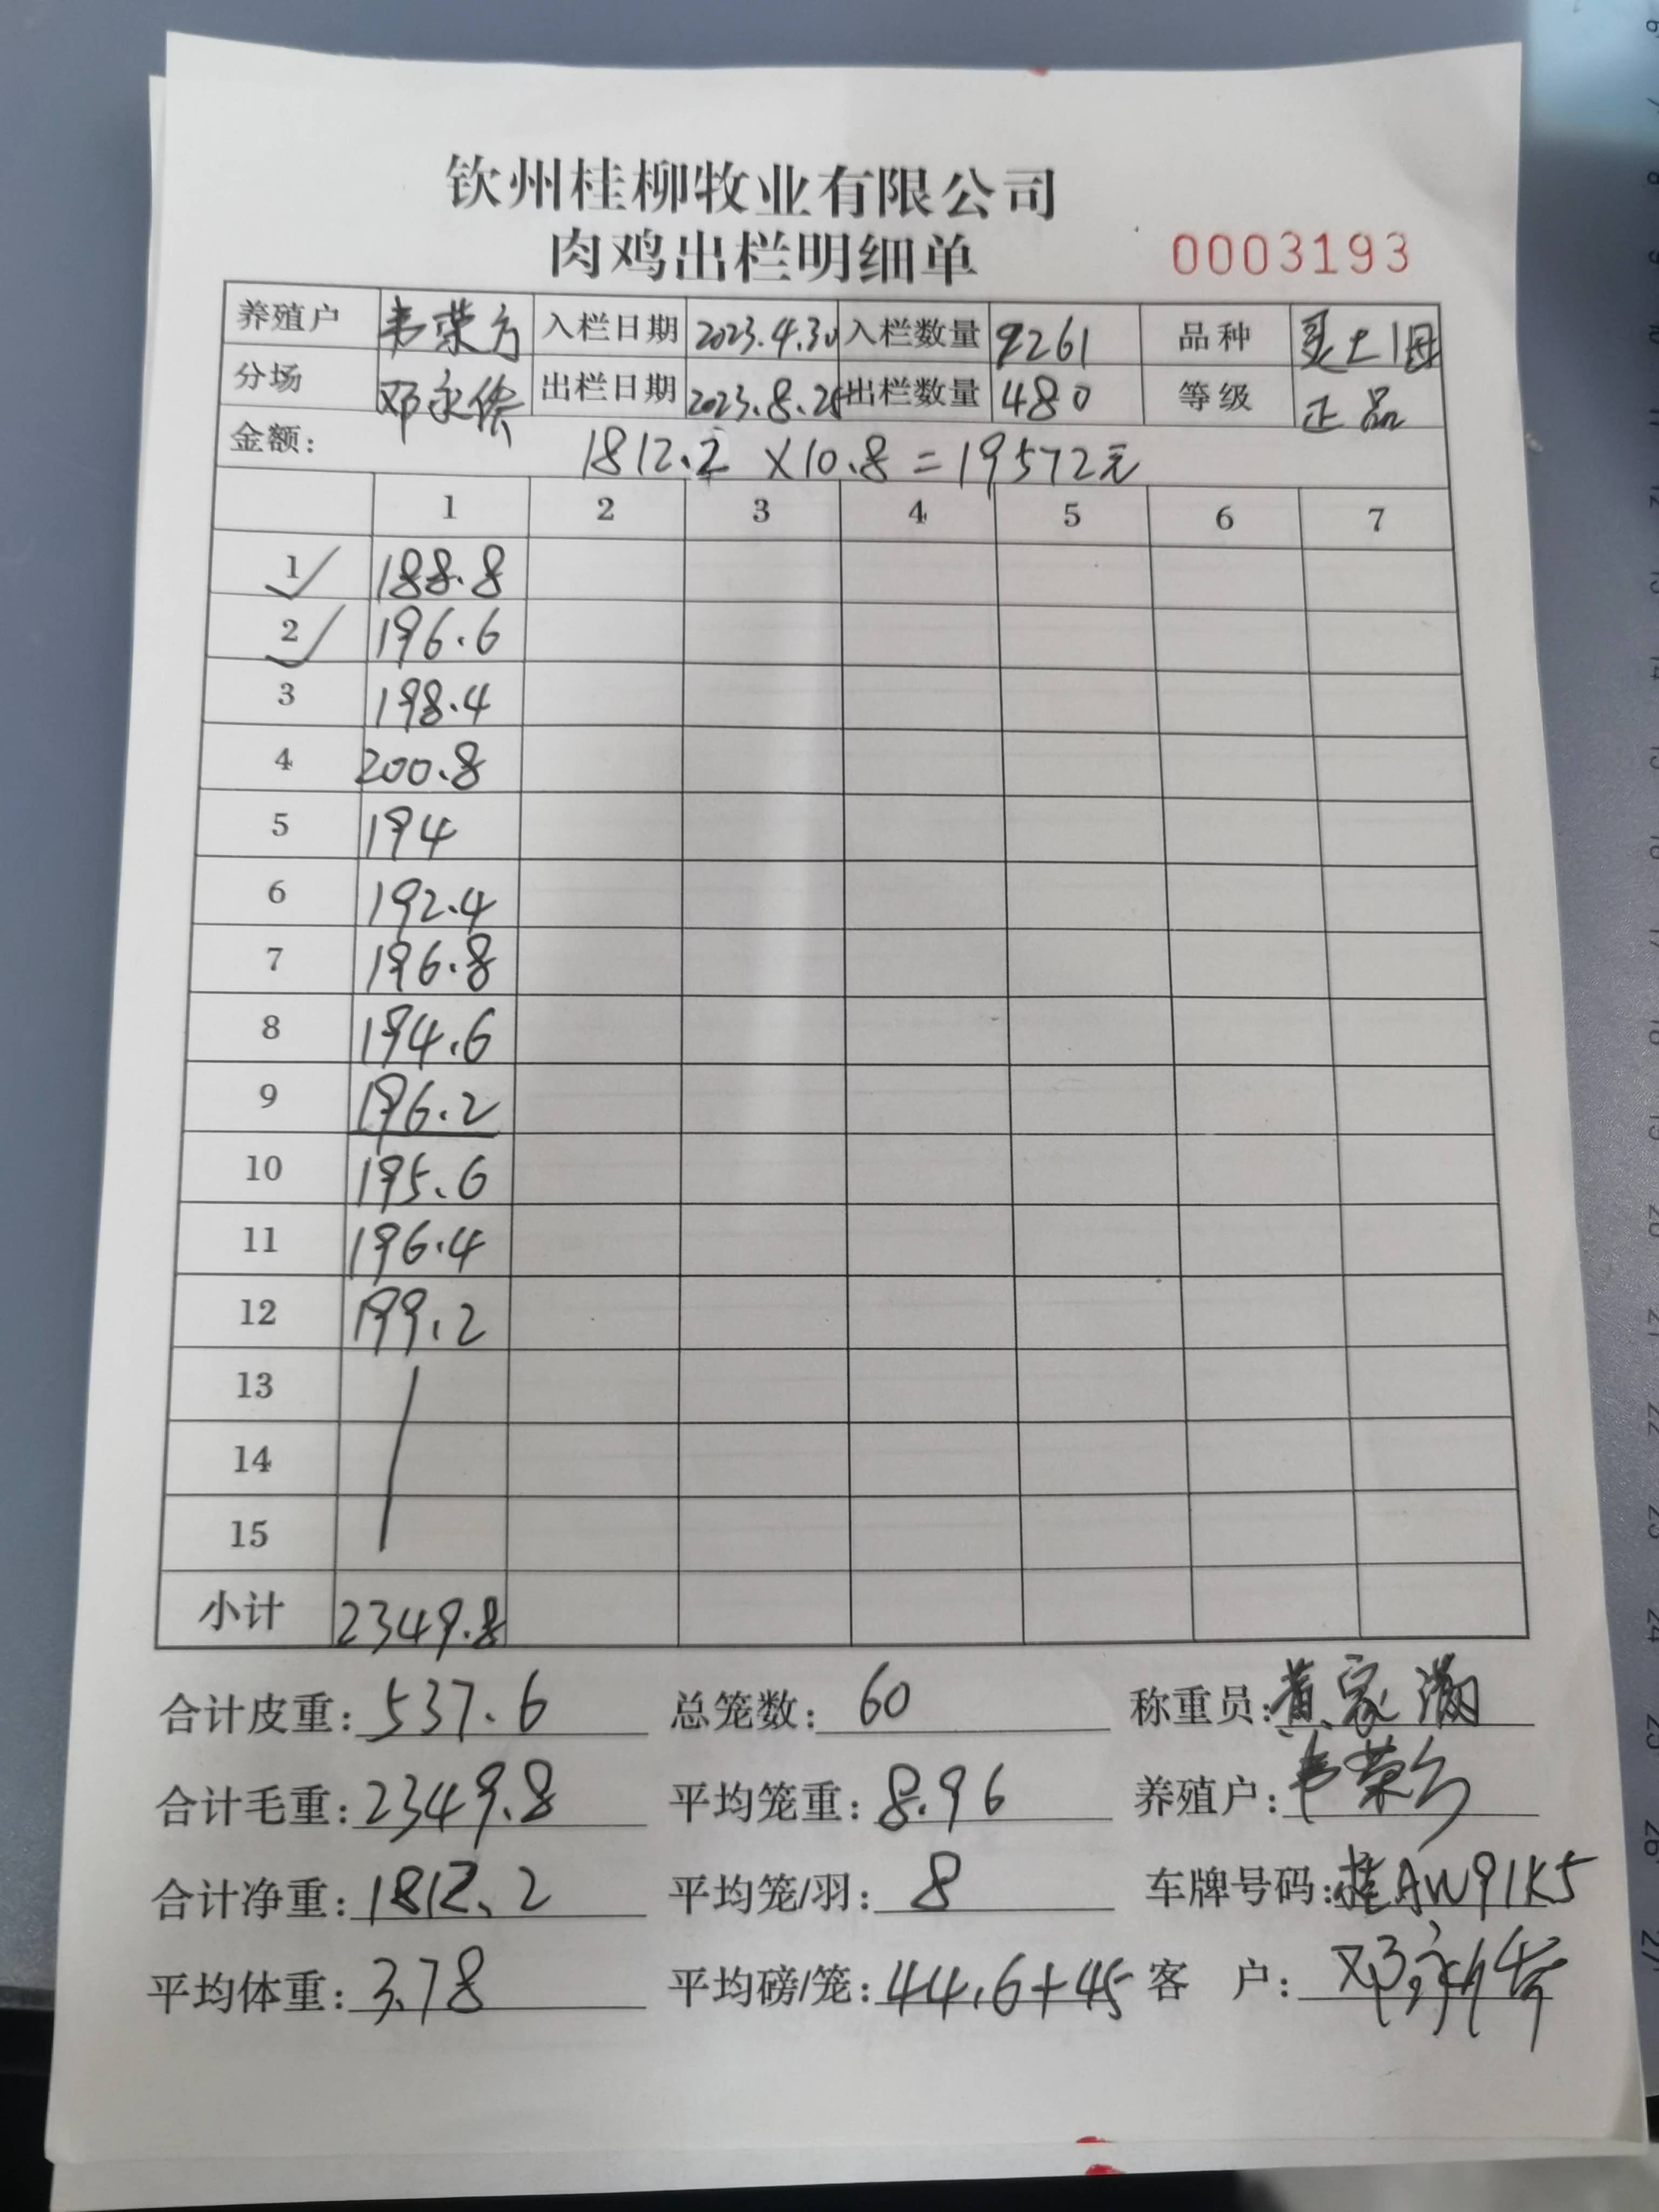 钦州桂柳牧业有限公司
肉鸡出栏明细单 0003193
养殖户 韦荣方 入栏日期 2023.4.30 入栏数量 9261 品种 土1母
分场 邓永 出栏日期 2023.8.28 出栏数量 480 等级 正品
金额: 1812.2 ×10.8=19572元
1 2 3 4 5 6 7
1 188.8
2 196.6
3 198.4
4 200.8
5 194
6 192.4
7 196.8
8 194.6
9 196.2
10 195.6
11 196.4
12 199.2
13
14
15
小计 2349.8
合计皮重: 537.6 总笼数: 60 称重员: 黄家
合计毛重: 2349.8 平均笼重: 8.96 养殖户: 韦荣方
合计净重: 1812.2 平均笼/羽: 8 车牌号码: 桂AW91K5
平均体重: 3.78 平均磅/笼: 44.6+45 客 户: 邓永